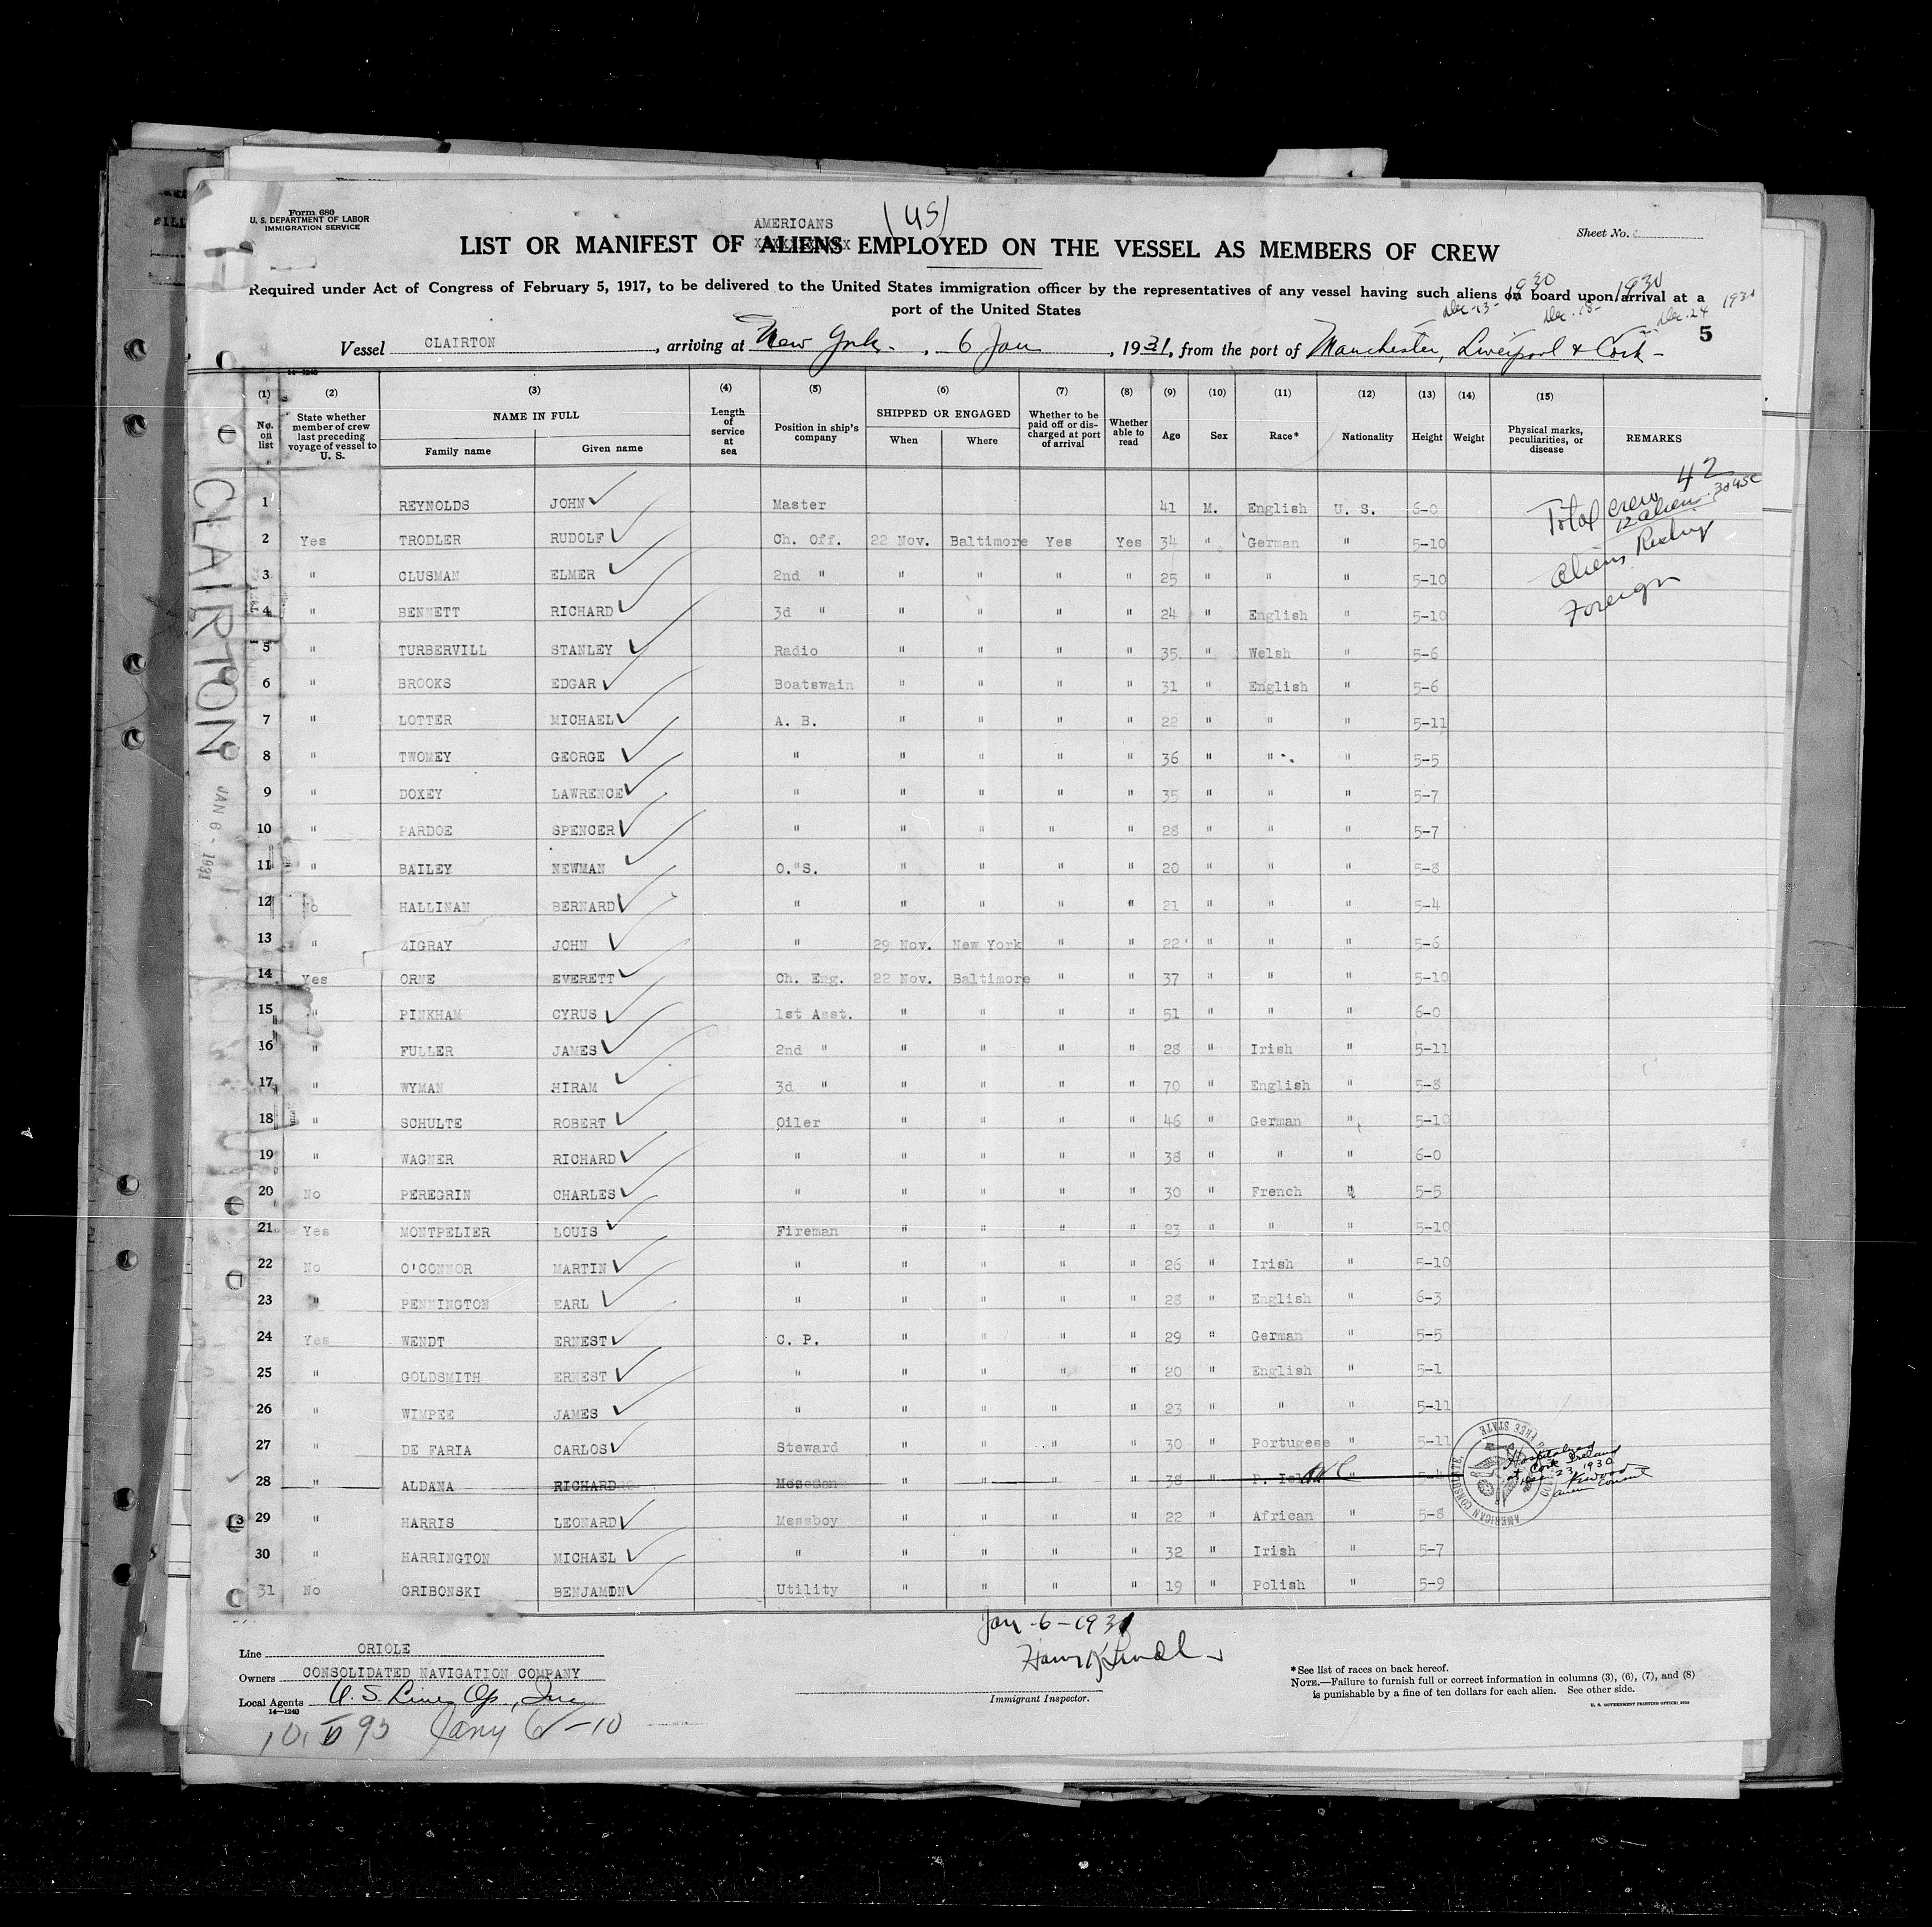 Form 680
U. S. DEPARTMENT OF LABOR
IMMIGRATION SERVICE
(US)
AMERICANS
LIST OR MANIFEST OF ALIENS EMPLOYED ON THE VESSEL AS MEMBERS OF CREW
Sheet No.
Required under Act of Congress of February 5, 1917, to be delivered to the United States immigration officer by the representatives of any vessel having such aliens on board upon arrival at a
port of the United States
Dec. 13- 1930 Dec. 18- 1930 Dec. 24
5
Vessel CLAIRTON, arriving at New York., 6 Jan, 1931, from the port of Manchester, Liverpool & Cork-
14-1240
(1) No. on list
(2) State whether member of crew last preceding voyage of vessel to U. S.
(3) NAME IN FULL Family name Given name
(4) Length of service at sea
(5) Position in ship's company
(6) SHIPPED OR ENGAGED When Where
(7) Whether to be paid off or discharged at port of arrival
(8) Whether able to read
(9) Age
(10) Sex
(11) Race*
(12) Nationality
(13) Height
(14) Weight
(15) Physical marks, peculiarities, or disease
REMARKS
1 REYNOLDS JOHN Master 41 M. English U. S. 6-0
2 Yes TRODLER RUDOLF Ch. Off. 22 Nov. Baltimore Yes Yes 34 " German " 5-10
3 " CLUSMAN ELMER 2nd " " " " " 25 " " " 5-10
4 " BENNETT RICHARD 3d " " " " " 24 " English " 5-10
5 " TURBERVILL STANLEY Radio " " " " 35 " Welsh " 5-6
6 " BROOKS EDGAR Boatswain " " " " 31 " English " 5-6
7 " LOTTER MICHAEL A. B. " " " " 22 " " " 5-11
8 " TWOMEY GEORGE " " " " " 36 " " " 5-5
9 " DOXEY LAWRENCE " " " " " 35 " " " 5-7
10 " PARDOE SPENCER " " " " " 28 " " " 5-7
11 " BAILEY NEWMAN O."S. " " " " 20 " " " 5-8
12 No HALLINAN BERNARD " " " " " 21 " " " 5-4
13 " ZIGRAY JOHN " 29 Nov. New York " " 22 " " " 5-6
14 Yes ORNE EVERETT Ch. Eng. 22 Nov. Baltimore " " 37 " " " 5-10
15 " PINKHAM CYRUS 1st Asst. " " " " 51 " " " 6-0
16 " FULLER JAMES 2nd " " " " " 28 " Irish " 5-11
17 " WYMAN HIRAM 3d " " " " " 70 " English " 5-8
18 " SCHULTE ROBERT Oiler " " " " 46 " German " 5-10
19 " WAGNER RICHARD " " " " " 38 " " " 6-0
20 No PEREGRIN CHARLES " " " " " 30 " French " 5-5
21 Yes MONTPELIER LOUIS Fireman " " " " 23 " " " 5-10
22 No O'CONNOR MARTIN " " " " " 26 " Irish " 5-10
23 " PENNINGTON EARL " " " " " 28 " English " 6-3
24 Yes WENDT ERNEST C. P. " " " " 29 " German " 5-5
25 " GOLDSMITH ERNEST " " " " " 20 " English " 5-1
26 " WIMPEE JAMES " " " " " 23 " " " 5-11
27 " DE FARIA CARLOS Steward " " " " 30 " Portugese " 5-11
28 " ALDANA RICHARD Messman " " " " 38 " "
29 " HARRIS LEONARD Messboy " " " " 22 " African " 5-8
30 " HARRINGTON MICHAEL " " " " " 32 " Irish " 5-7
31 No GRIBONSKI BENJAMIN Utility " " " " 19 " Polish " 5-9
Total crew 42
12 aliens 30 USC
Aliens
Foreign
Hospitalized
at Cork Ireland
Dec. 23, 1930
AMERICAN CONSULATE,
FREE STATE
CLAIRTON
JAN 6 - 1931
Jan-6-1931
Immigrant Inspector.
Line ORIOLE
Owners CONSOLIDATED NAVIGATION COMPANY
Local Agents U. S. Lines Op., Inc.
14-1240
*See list of races on back hereof.
NOTE.—Failure to furnish full or correct information in columns (3), (6), (7), and (8)
is punishable by a fine of ten dollars for each alien. See other side.
U. S. GOVERNMENT PRINTING OFFICE: 1930